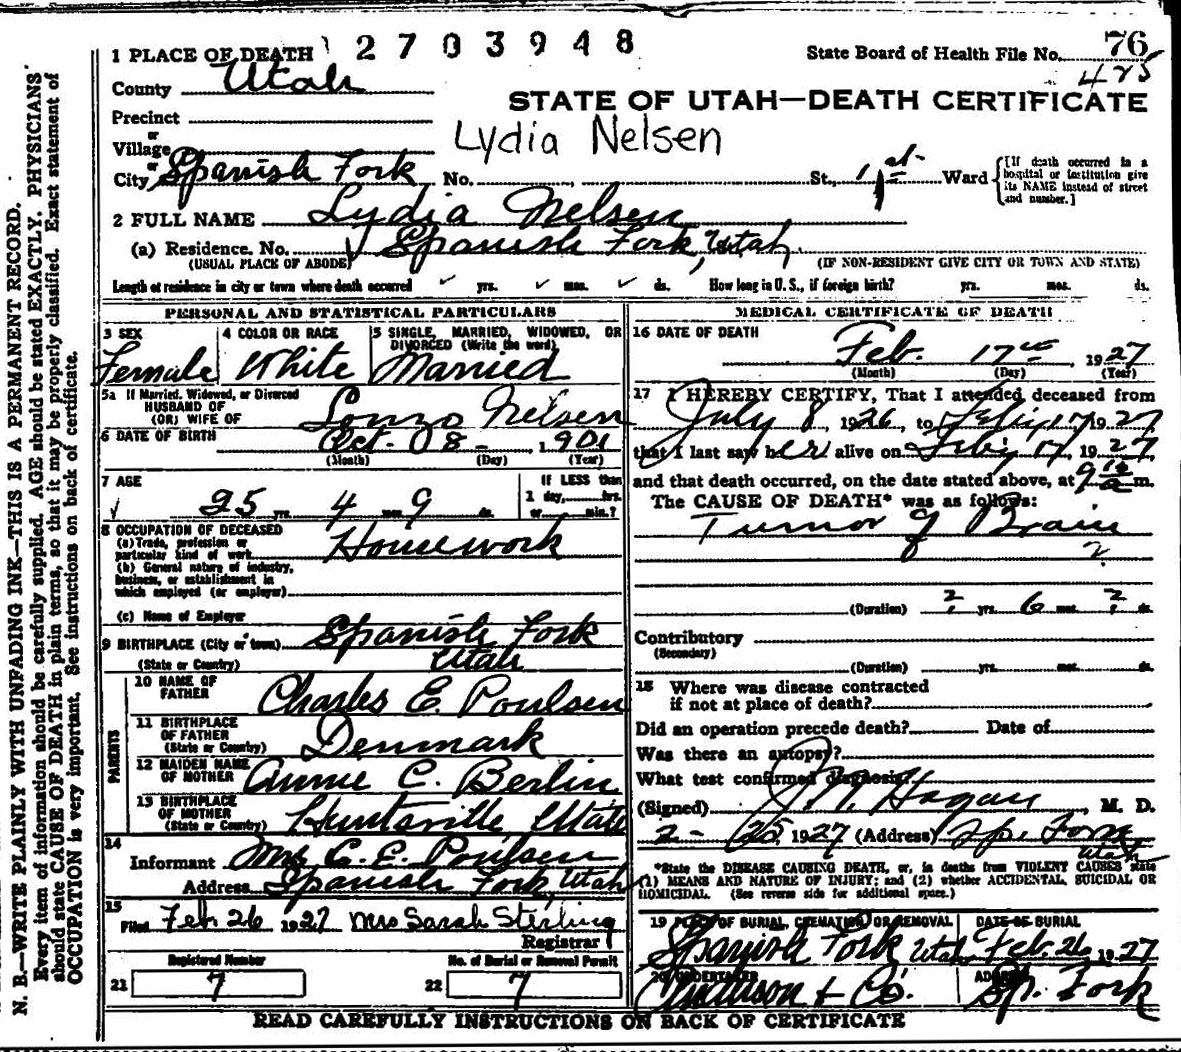 2703948
State Board of Health File No. 76
485
1 PLACE OF DEATH
County Utah
STATE OF UTAH—DEATH CERTIFICATE
Precinct
or
Village
Lydia Nelsen
or
City Spanish Fork No. , St., 1st Ward
[If death occurred in a hospital or institution give its NAME instead of street and number.]
2 FULL NAME Lydia Nelsen
(a) Residence. No. Spanish Fork, Utah.
(USUAL PLACE OF ABODE) (IF NON-RESIDENT GIVE CITY OR TOWN AND STATE)
Length of residence in city or town where death occurred yrs. mos. ds. How long in U. S., if foreign birth? yrs. mos. ds.
PERSONAL AND STATISTICAL PARTICULARS
3 SEX
Female
4 COLOR OR RACE
White
5 SINGLE, MARRIED, WIDOWED, OR
DIVORCED (Write the word)
Married
5a If Married, Widowed, or Divorced
HUSBAND OF
(OR) WIFE OF Lonzo Nelsen
6 DATE OF BIRTH Oct. 08 - , 1901
(Month) (Day) (Year)
7 AGE
25 yrs. 4 mos. 9 ds.
If LESS than
1 day, hrs.
or min.?
8 OCCUPATION OF DECEASED
(a) Trade, profession or
particular kind of work Housework
(b) General nature of industry,
business, or establishment in
which employed (or employer)
(c) Name of Employer
9 BIRTHPLACE (City or town) Spanish Fork
(State or Country) Utah
PARENTS
10 NAME OF
FATHER Charles E. Poulsen
11 BIRTHPLACE
OF FATHER
(State or Country) Denmark
12 MAIDEN NAME
OF MOTHER Annie C. Berlin
13 BIRTHPLACE
OF MOTHER
(State or Country) Huntsville Utah
14
Informant Mrs C. E. Poulsen
Address Spanish Fork, Utah
15
Filed Feb 26 1927 Mrs Sarah Sterling
Registrar
Registered Number
21 7
No. of Burial or Removal Permit
22 7
MEDICAL CERTIFICATE OF DEATH
16 DATE OF DEATH
Feb. 17th , 1927
(Month) (Day) (Year)
17 I HEREBY CERTIFY, That I attended deceased from
July 8, 1926, to Feby 17 1927
that I last saw her alive on Feby 17 1927
and that death occurred, on the date stated above, at 9 10 a m.
The CAUSE OF DEATH* was as follows:
Tumor of Brain
?
(Duration) ? yrs. 6 mos. ? ds.
Contributory
(Secondary)
(Duration) yrs. mos. ds.
18 Where was disease contracted
if not at place of death?
Did an operation precede death? Date of
Was there an autopsy?
What test confirmed diagnosis?
(Signed) J. M. Hagan , M. D.
2 - 25, 1927 (Address) Sp. Fork
Utah
*State the DISEASE CAUSING DEATH, or, in deaths from VIOLENT CAUSES state
(1) MEANS AND NATURE OF INJURY; and (2) whether ACCIDENTAL, SUICIDAL OR
HOMICIDAL. (See reverse side for additional space.)
19 PLACE OF BURIAL, CREMATION OR REMOVAL
Spanish Fork Utah
DATE OF BURIAL
Feb. 26 1927
20 UNDERTAKER
& Co.
ADDRESS
Sp. Fork
READ CAREFULLY INSTRUCTIONS ON BACK OF CERTIFICATE
N. B.—WRITE PLAINLY WITH UNFADING INK—THIS IS A PERMANENT RECORD.
Every item of information should be carefully supplied. AGE should be stated EXACTLY. PHYSICIANS
should state CAUSE OF DEATH in plain terms, so that it may be properly classified. Exact statement of
OCCUPATION is very important. See instructions on back of certificate.